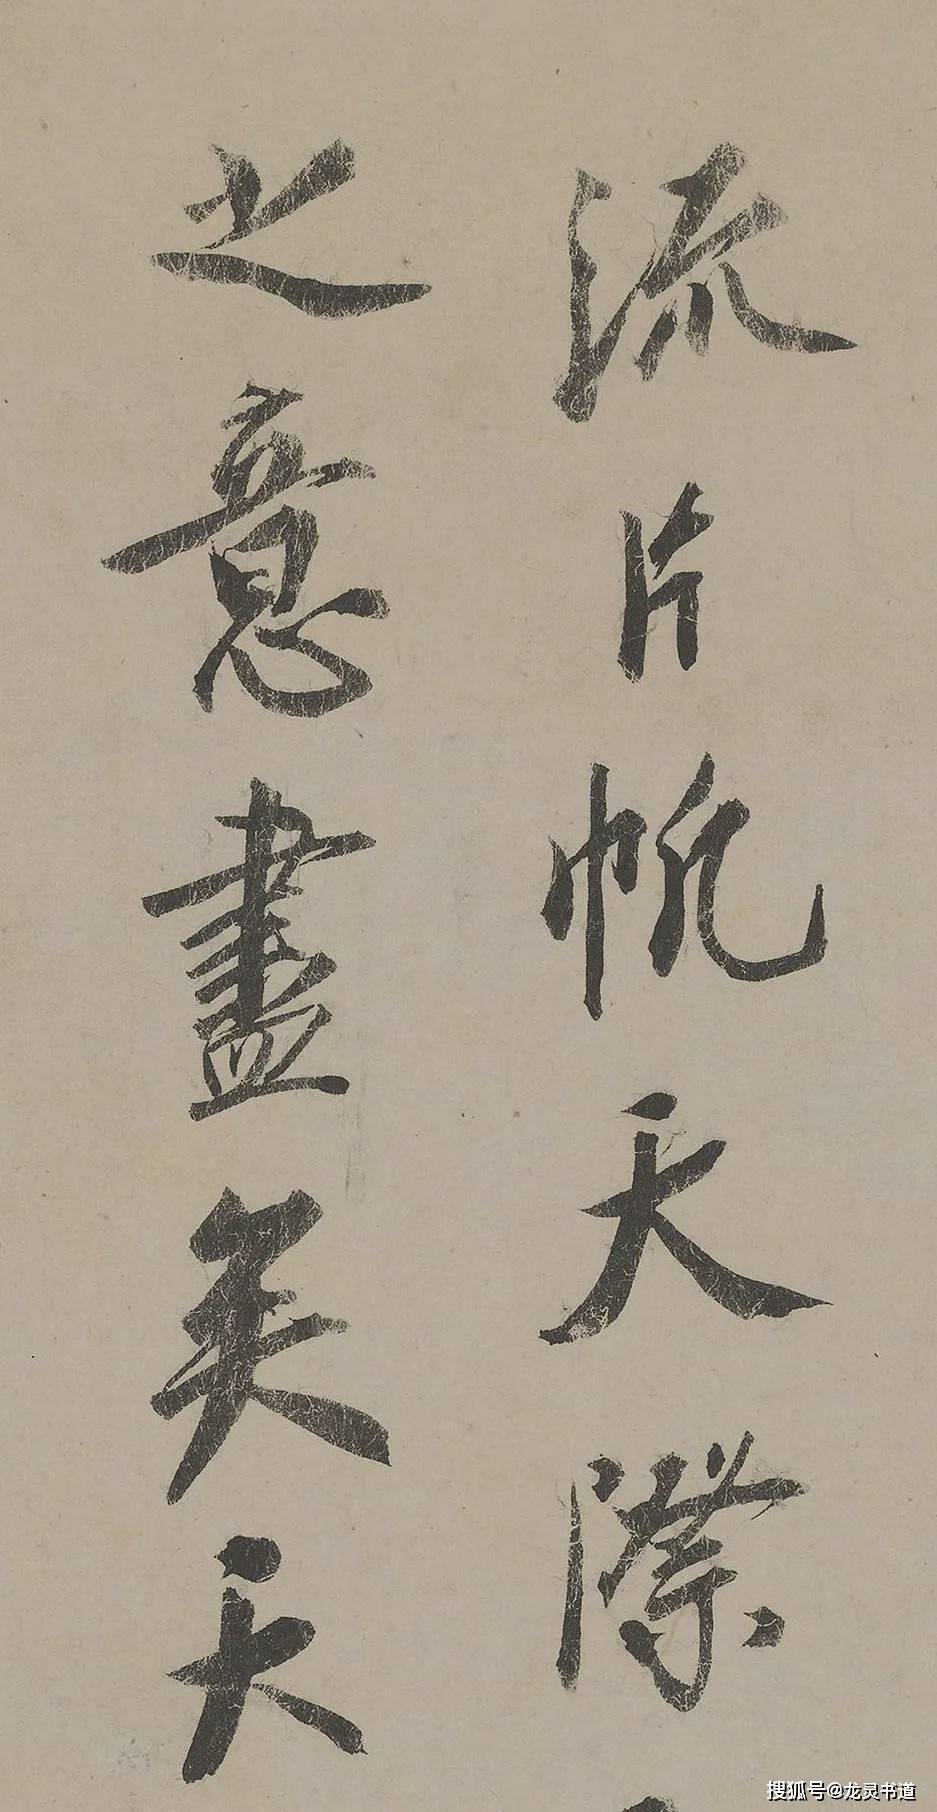 流片帆天際
之意盡矣天
搜狐号@龙灵书道